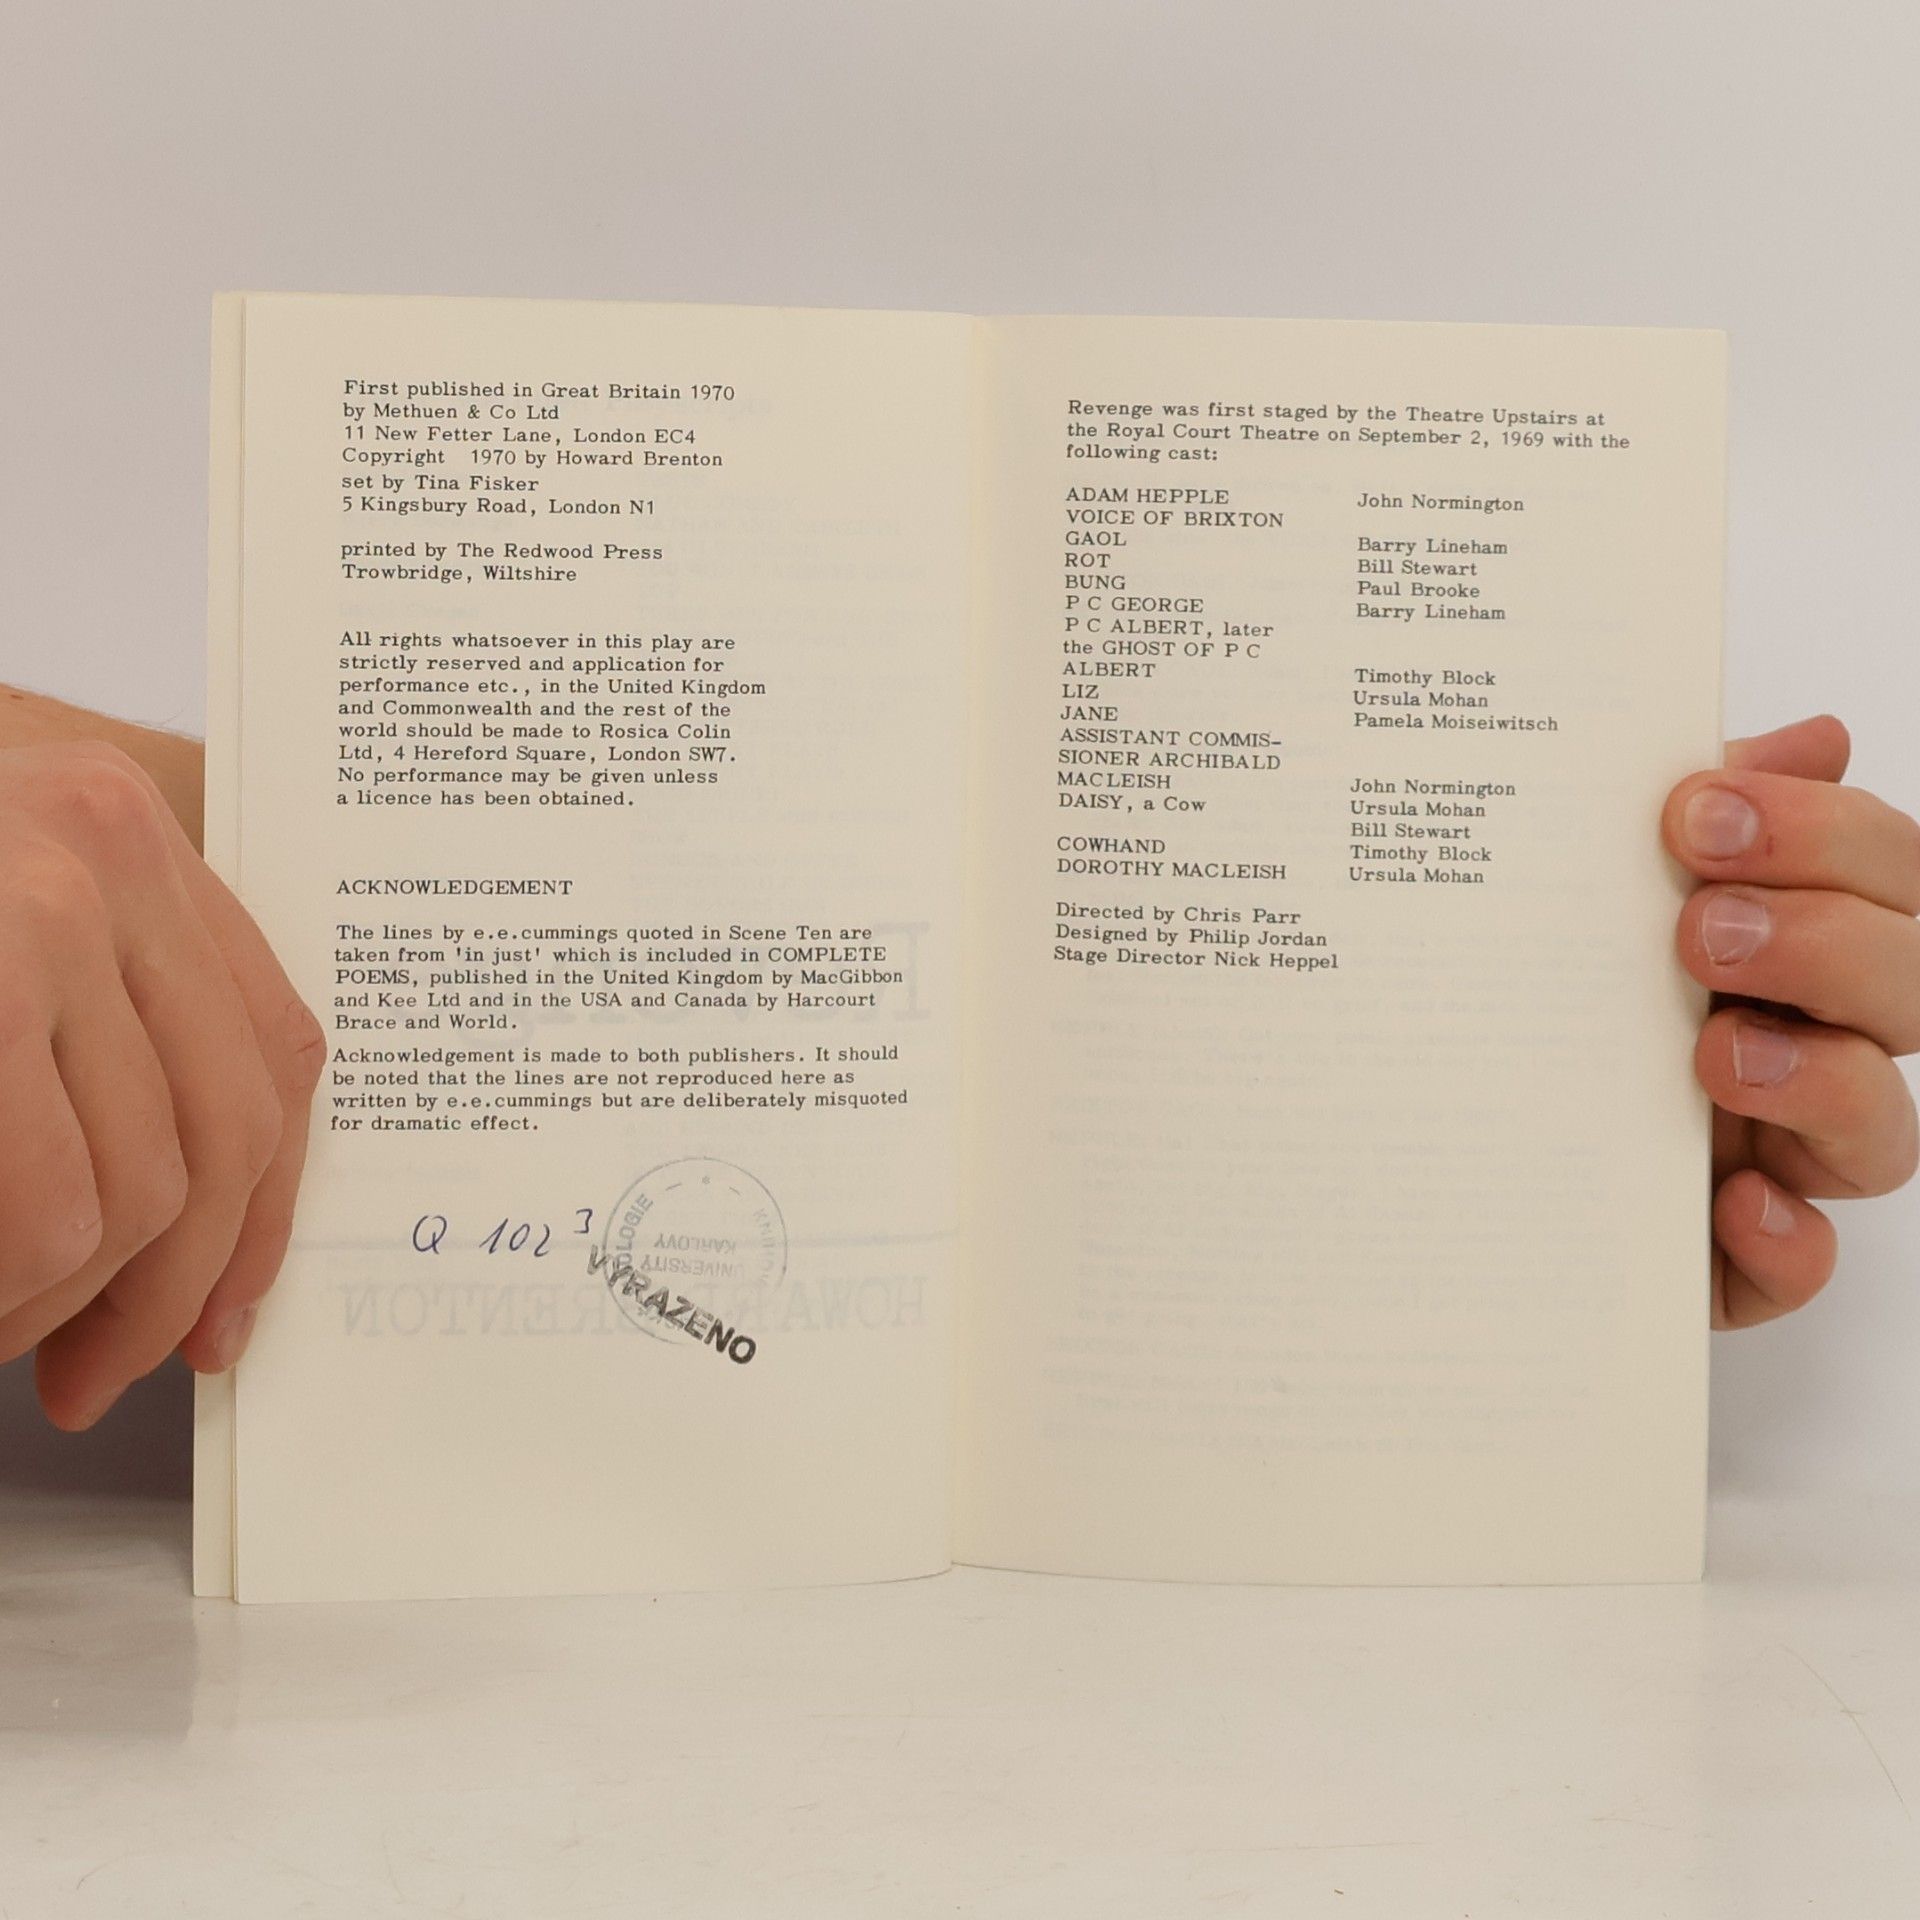 First published in Great Britain 1970
by Methuen & Co Ltd
11 New Fetter Lane, London EC4
Copyright 1970 by Howard Brenton
set by Tina Fisker
5 Kingsbury Road, London N1
printed by The Redwood Press
Trowbridge, Wiltshire
All rights whatsoever in this play are
strictly reserved and application for
performance etc., in the United Kingdom
and Commonwealth and the rest of the
world should be made to Rosica Colin
Ltd, 4 Hereford Square, London SW7.
No performance may be given unless
a licence has been obtained.
ACKNOWLEDGEMENT
The lines by e.e.cummings quoted in Scene Ten are
taken from 'in just' which is included in COMPLETE
POEMS, published in the United Kingdom by MacGibbon
and Kee Ltd and in the USA and Canada by Harcourt
Brace and World.
Acknowledgement is made to both publishers. It should
be noted that the lines are not reproduced here as
written by e.e.cummings but are deliberately misquoted
for dramatic effect.
Q 102 3
UNIVERSITY
KARLOVY
VYRAZENO
Revenge was first staged by the Theatre Upstairs at
the Royal Court Theatre on September 2, 1969 with the
following cast:
ADAM HEPPLE John Normington
VOICE OF BRIXTON
GAOL Barry Lineham
ROT Bill Stewart
BUNG Paul Brooke
P C GEORGE Barry Lineham
P C ALBERT, later
the GHOST OF P C
ALBERT Timothy Block
LIZ Ursula Mohan
JANE Pamela Moiseiwitsch
ASSISTANT COMMIS-
SIONER ARCHIBALD
MACLEISH John Normington
DAISY, a Cow Ursula Mohan
Bill Stewart
COWHAND Timothy Block
DOROTHY MACLEISH Ursula Mohan
Directed by Chris Parr
Designed by Philip Jordan
Stage Director Nick Heppel